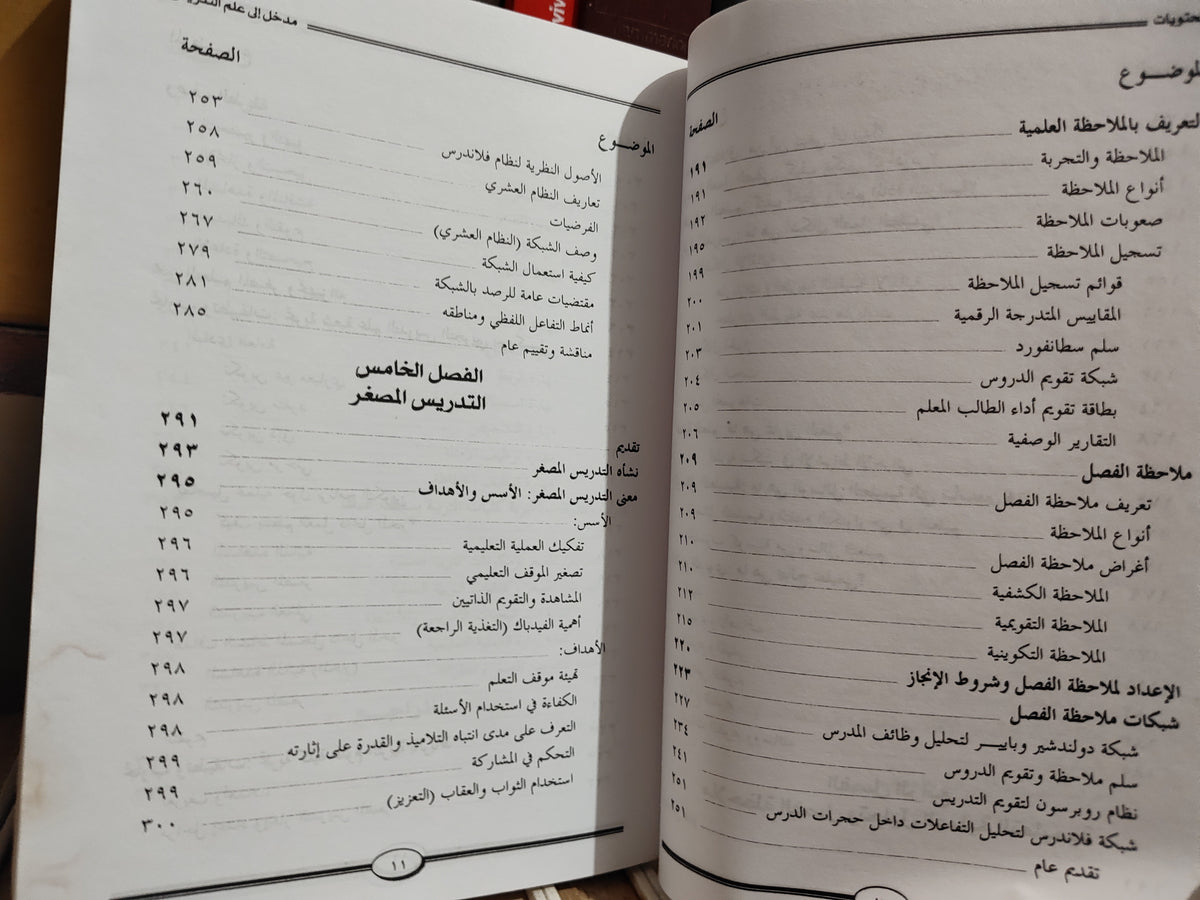 محتويات
الموضـــوع الصفحة
التعريف بالملاحظة العلمية ١٩١
الملاحظة والتجربة ١٩١
أنواع الملاحظة ١٩٢
صعوبات الملاحظة ١٩٥
تسجيل الملاحظة ١٩٩
قوائم تسجيل الملاحظة ٢٠٠
المقاييس المتدرجة الرقمية ٢٠١
سلم سطانفورد ٢٠٣
شبكة تقويم الدروس ٢٠٤
بطاقة تقويم أداء الطالب المعلم ٢٠٥
التقارير الوصفية ٢٠٦
ملاحظة الفصل ٢٠٩
تعريف ملاحظة الفصل ٢٠٩
أنواع الملاحظة ٢٠٩
أغراض ملاحظة الفصل ٢١٠
الملاحظة الكشفية ٢١٠
الملاحظة التقويمية ٢١٢
الملاحظة التكوينية ٢١٥
الإعداد لملاحظة الفصل وشروط الإنجاز ٢٢٠
شبكات ملاحظة الفصل ٢٢٣
شبكة دولندشير وباييـــر لتحليل وظائف المدرس ٢٢٧
سلم ملاحظة وتقويم الدروس ٢٣٤
نظام روبرسون لتقويم التدريس ٢٤١
شبكة فلاندرس لتحليل التفاعلات داخل حجرات الدرس ٢٥١
تقديم عام ٢٥١
مدخل إلى علم التدريس
الموضـــوع الصفحة
الأصول النظرية لنظام فلاندرس ٢٥٣
تعاريف النظام العشري ٢٥٨
الفرضيات ٢٥٩
وصف الشبكة (النظام العشري) ٢٦٠
كيفية استعمال الشبكة ٢٦٧
مقتضيات عامة للرصد بالشبكة ٢٧٩
أنماط التفاعل اللفظي ومناطقه ٢٨١
مناقشة وتقييم عام ٢٨٥
الفصل الخامس
التدريس المصغر
تقديم ٢٩١
نشأه التدريس المصغر ٢٩٣
معنى التدريس المصغر: الأسس والأهداف ٢٩٥
الأسس: ٢٩٥
تفكيك العملية التعليمية ٢٩٦
تصغير الموقف التعليمي ٢٩٦
المشاهدة والتقويم الذاتيين ٢٩٧
أهمية الفيدباك (التغذية الراجعة) ٢٩٧
الأهداف: ٢٩٨
تهيئة موقف التعلم ٢٩٨
الكفاءة في استخدام الأسئلة ٢٩٨
التعرف على مدى انتباه التلاميذ والقدرة على إثارته ٢٩٩
التحكم في المشاركة ٢٩٩
استخدام الثواب والعقاب (التعزيز) ٣٠٠
١١